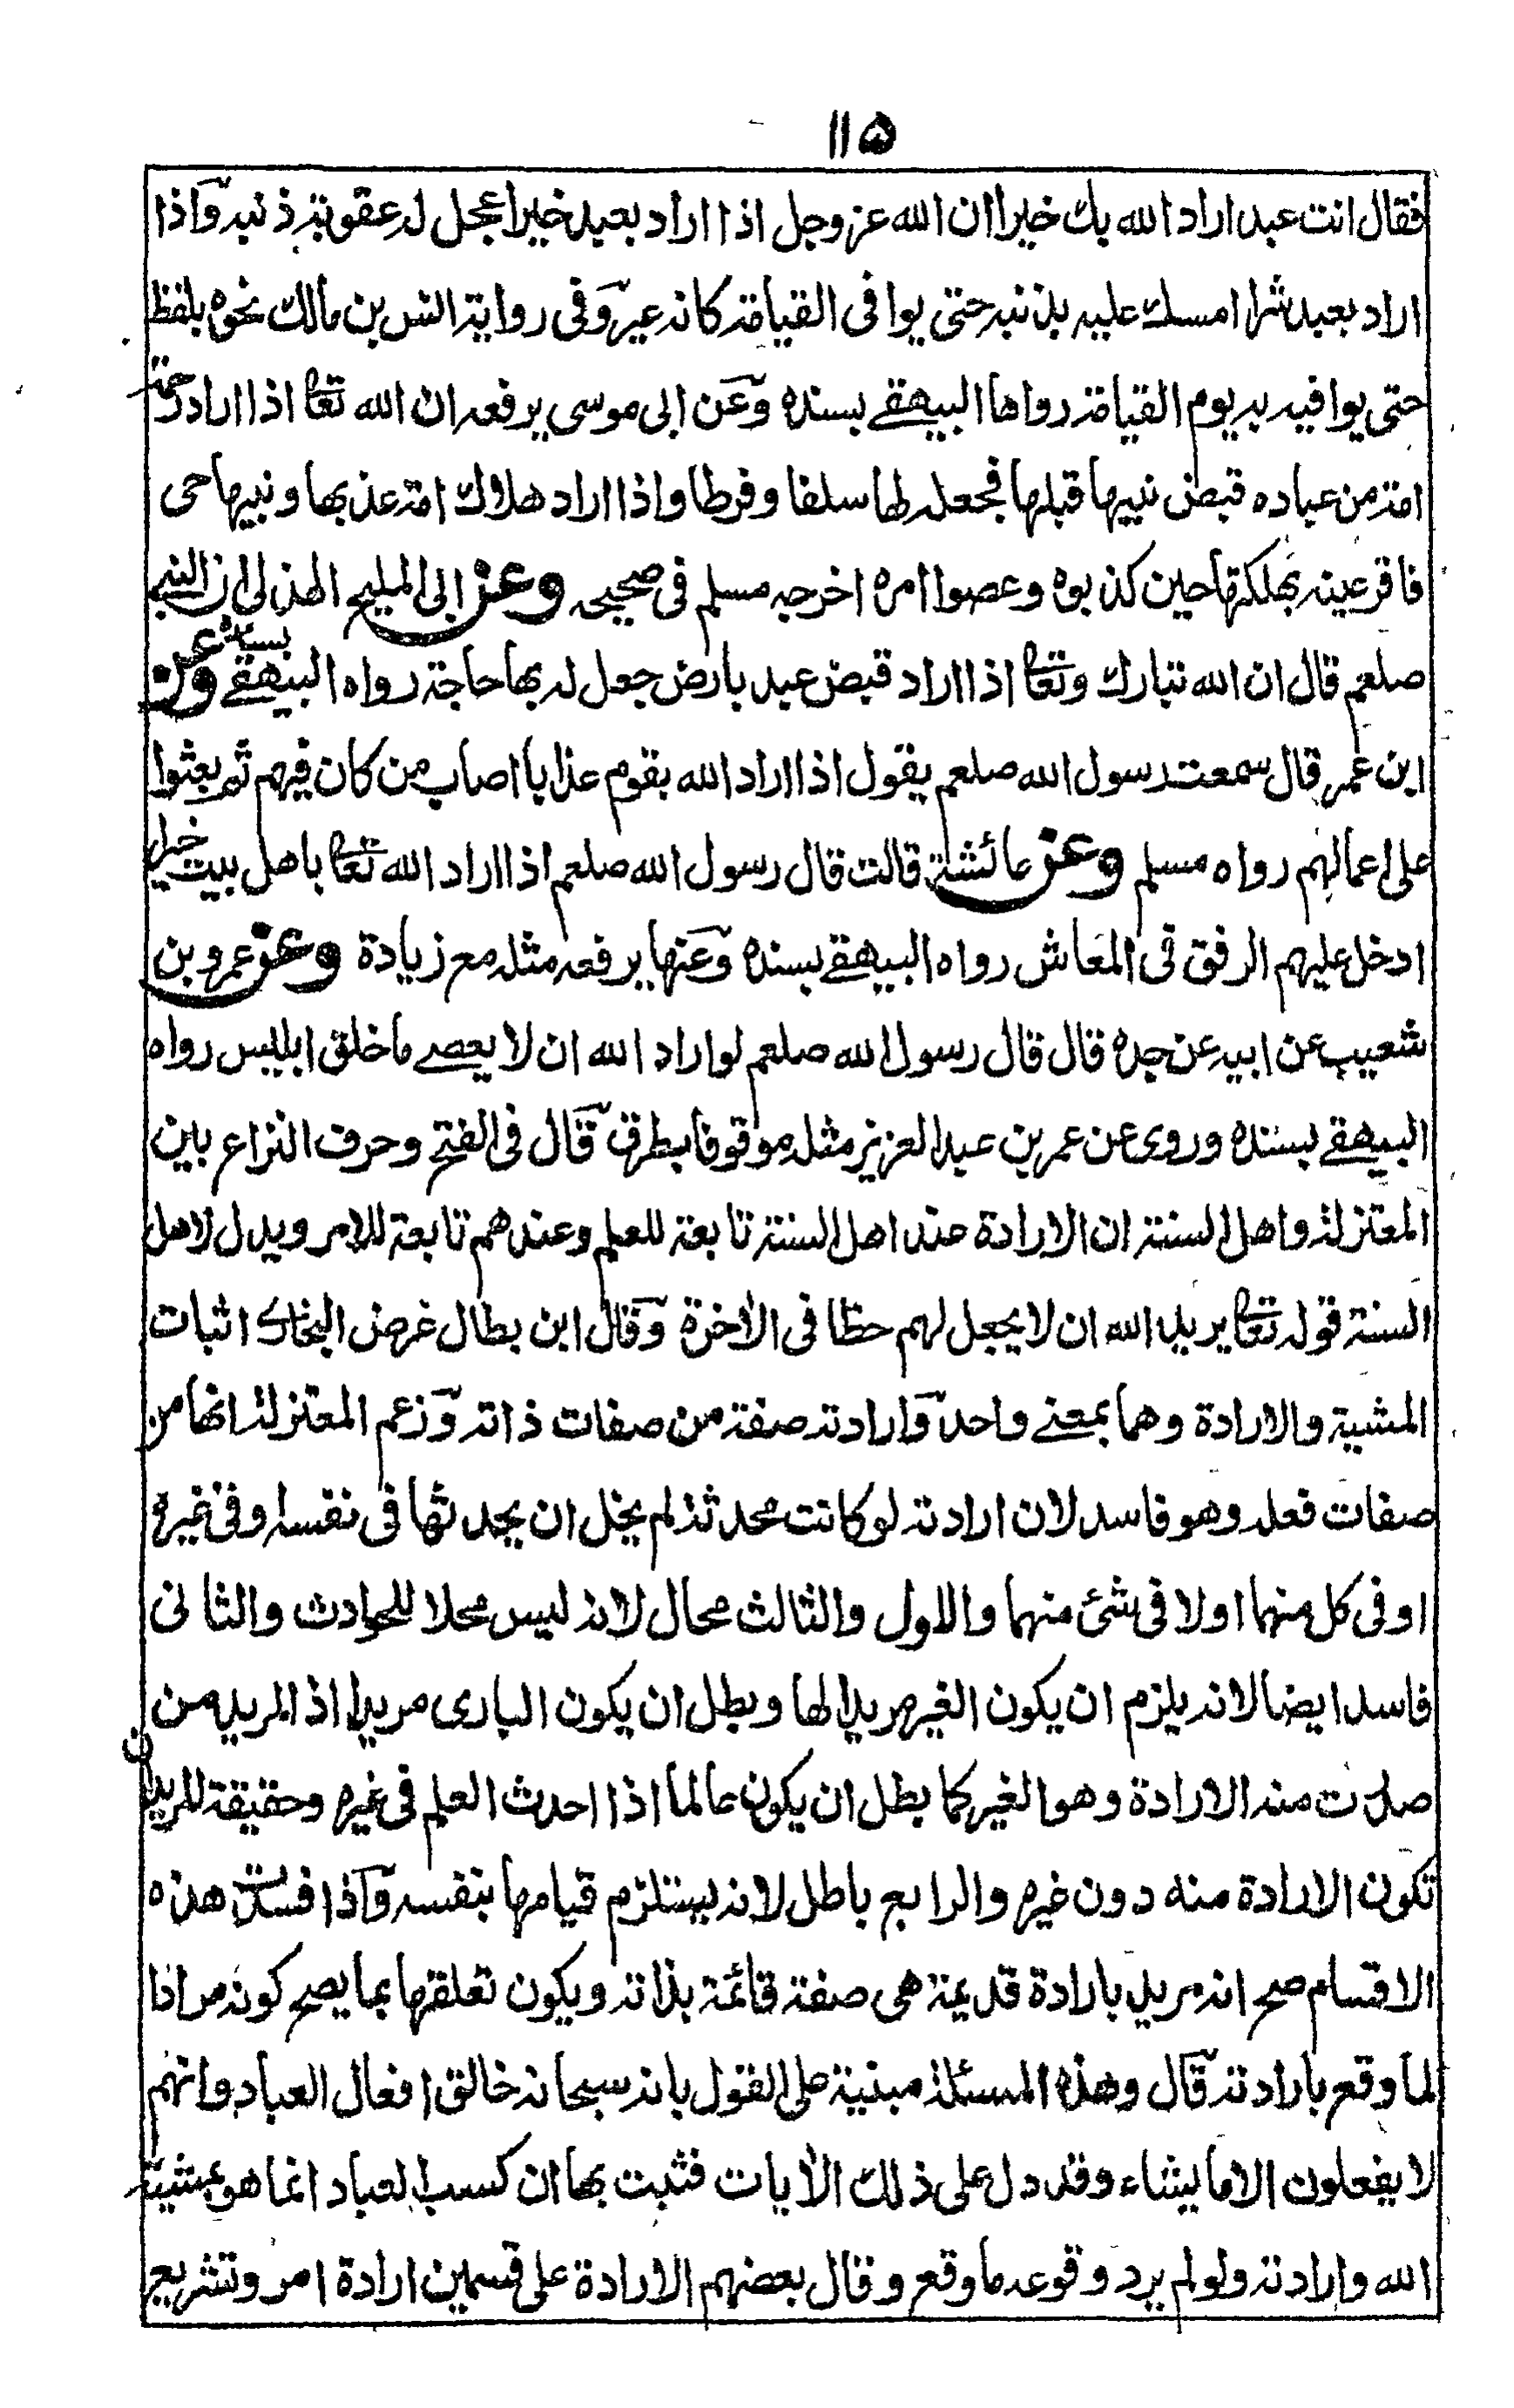 ١١٥
فقال انت عبد اراد الله بك خيرا ان الله عز وجل اذا اراد بعبد خيرا عجل له عقوبة ذنبه واذا
اراد بعبد شرا امسك عليه بذنبه حتى يوافى القيامة كانه عير وفى رواية انس بن مالك نحوه بلفظ
حتى يوافيه به يوم القيامة رواها البيهقے بسنده وعن ابى موسى يرفعه ان الله تعا اذا اراد رحمة
امة من عباده قبض نبيها قبلها فجعله لها سلفا وفرطا واذا اراد هلاك امة عذبها ونبيها حى
فاقر عينه بهلكتها حين كذبوه وعصوا امره اخرجه مسلم فى صحيحه وعن ابى المليح الهذلى ان النبے
صلعم قال ان الله تبارك وتعا اذا اراد قبض عبد بارض جعل له بها حاجة رواه البيهقے بسنده وعن
ابن عمر قال سمعت رسول الله صلعم يقول اذا اراد الله بقوم عذابا اصاب من كان فيهم ثم بعثوا
على اعمالهم رواه مسلم وعن عائشة قالت قال رسول الله صلعم اذا اراد الله تعا باهل بيت خيرا
ادخل عليهم الرفق فى المعاش رواه البيهقے بسنده وعنها يرفعه مثله مع زيادة وعن عمرو بن
شعيب عن ابيه عن جده قال قال رسول الله صلعم لو اراد الله ان لا يعصے ما خلق ابليس رواه
البيهقے بسنده وروى عن عمر بن عبد العزيز مثله موقوفا بطرق قال فى الفتح وحرف النزاع بين
المعتزلة واهل السنة ان الارادة عند اهل السنة تابعة للعلم وعندهم تابعة للامر ويدل لاهل
السنة قوله تعا يريد الله ان لا يجعل لهم حظا فى الاخرة وقال ابن بطال غرض البخارى اثبات
المشية والارادة وهما بمعنے واحد وارادته صفة من صفات ذاته وزعم المعتزلة انها من
صفات فعله وهو فاسد لان ارادته لو كانت محدثة لم يخل ان يحدثها فى نفسه او فى غيره
او فى كل منهما او لا فى شئ منهما والاول والثالث محال لانه ليس محلا للحوادث والثانى
فاسد ايضا لانه يلزم ان يكون الغير مريدا لها وبطل ان يكون البارى مريدا اذ المريد من
صدرت منه الارادة وهو الغير كما بطل ان يكون عالما اذا احدث العلم فى غيره وحقيقة المريد ان
تكون الارادة منه دون غيره والرابع باطل لانه يستلزم قيامها بنفسه واذا فسدت هذه
الاقسام صح انه مريد بارادة قديمة هى صفة قائمة بذاته ويكون تعلقها بما يصح كونه مرادا
لما وقع بارادته قال وهذه المسئلة مبنية على القول بانه سبحانه خالق افعال العباد وانهم
لا يفعلون الا ما يشاء وقد دل على ذلك الايات فثبت بها ان كسب العباد انما هو بمشية
الله وارادته ولو لم يرد وقوعه ما وقع وقال بعضهم الارادة على قسمين ارادة امر وتشريع